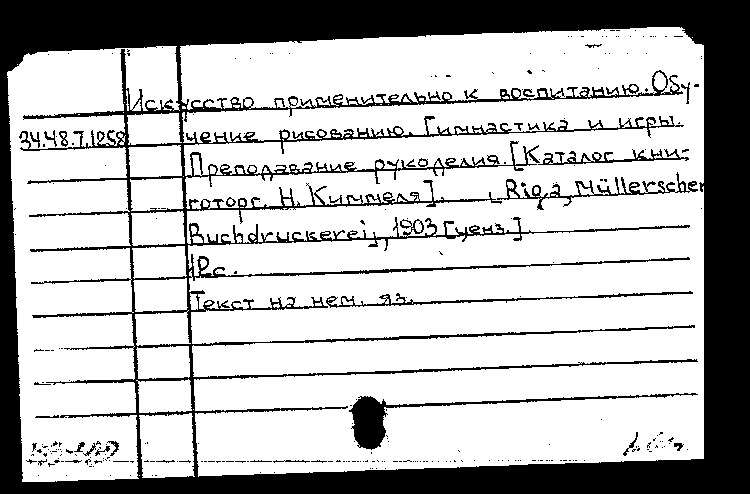 Искусство применительно к воспитанию. Обу-
34.48.7.1258 чение рисованию. Гимнастика и игры.
Преподавание рукоделия. [Каталог кни-
готорг. Н. Киммеля]. [Riga, Müllerscher
Buchdruckerei], 1903 [ценз.].
12с.
Текст на нем. яз.